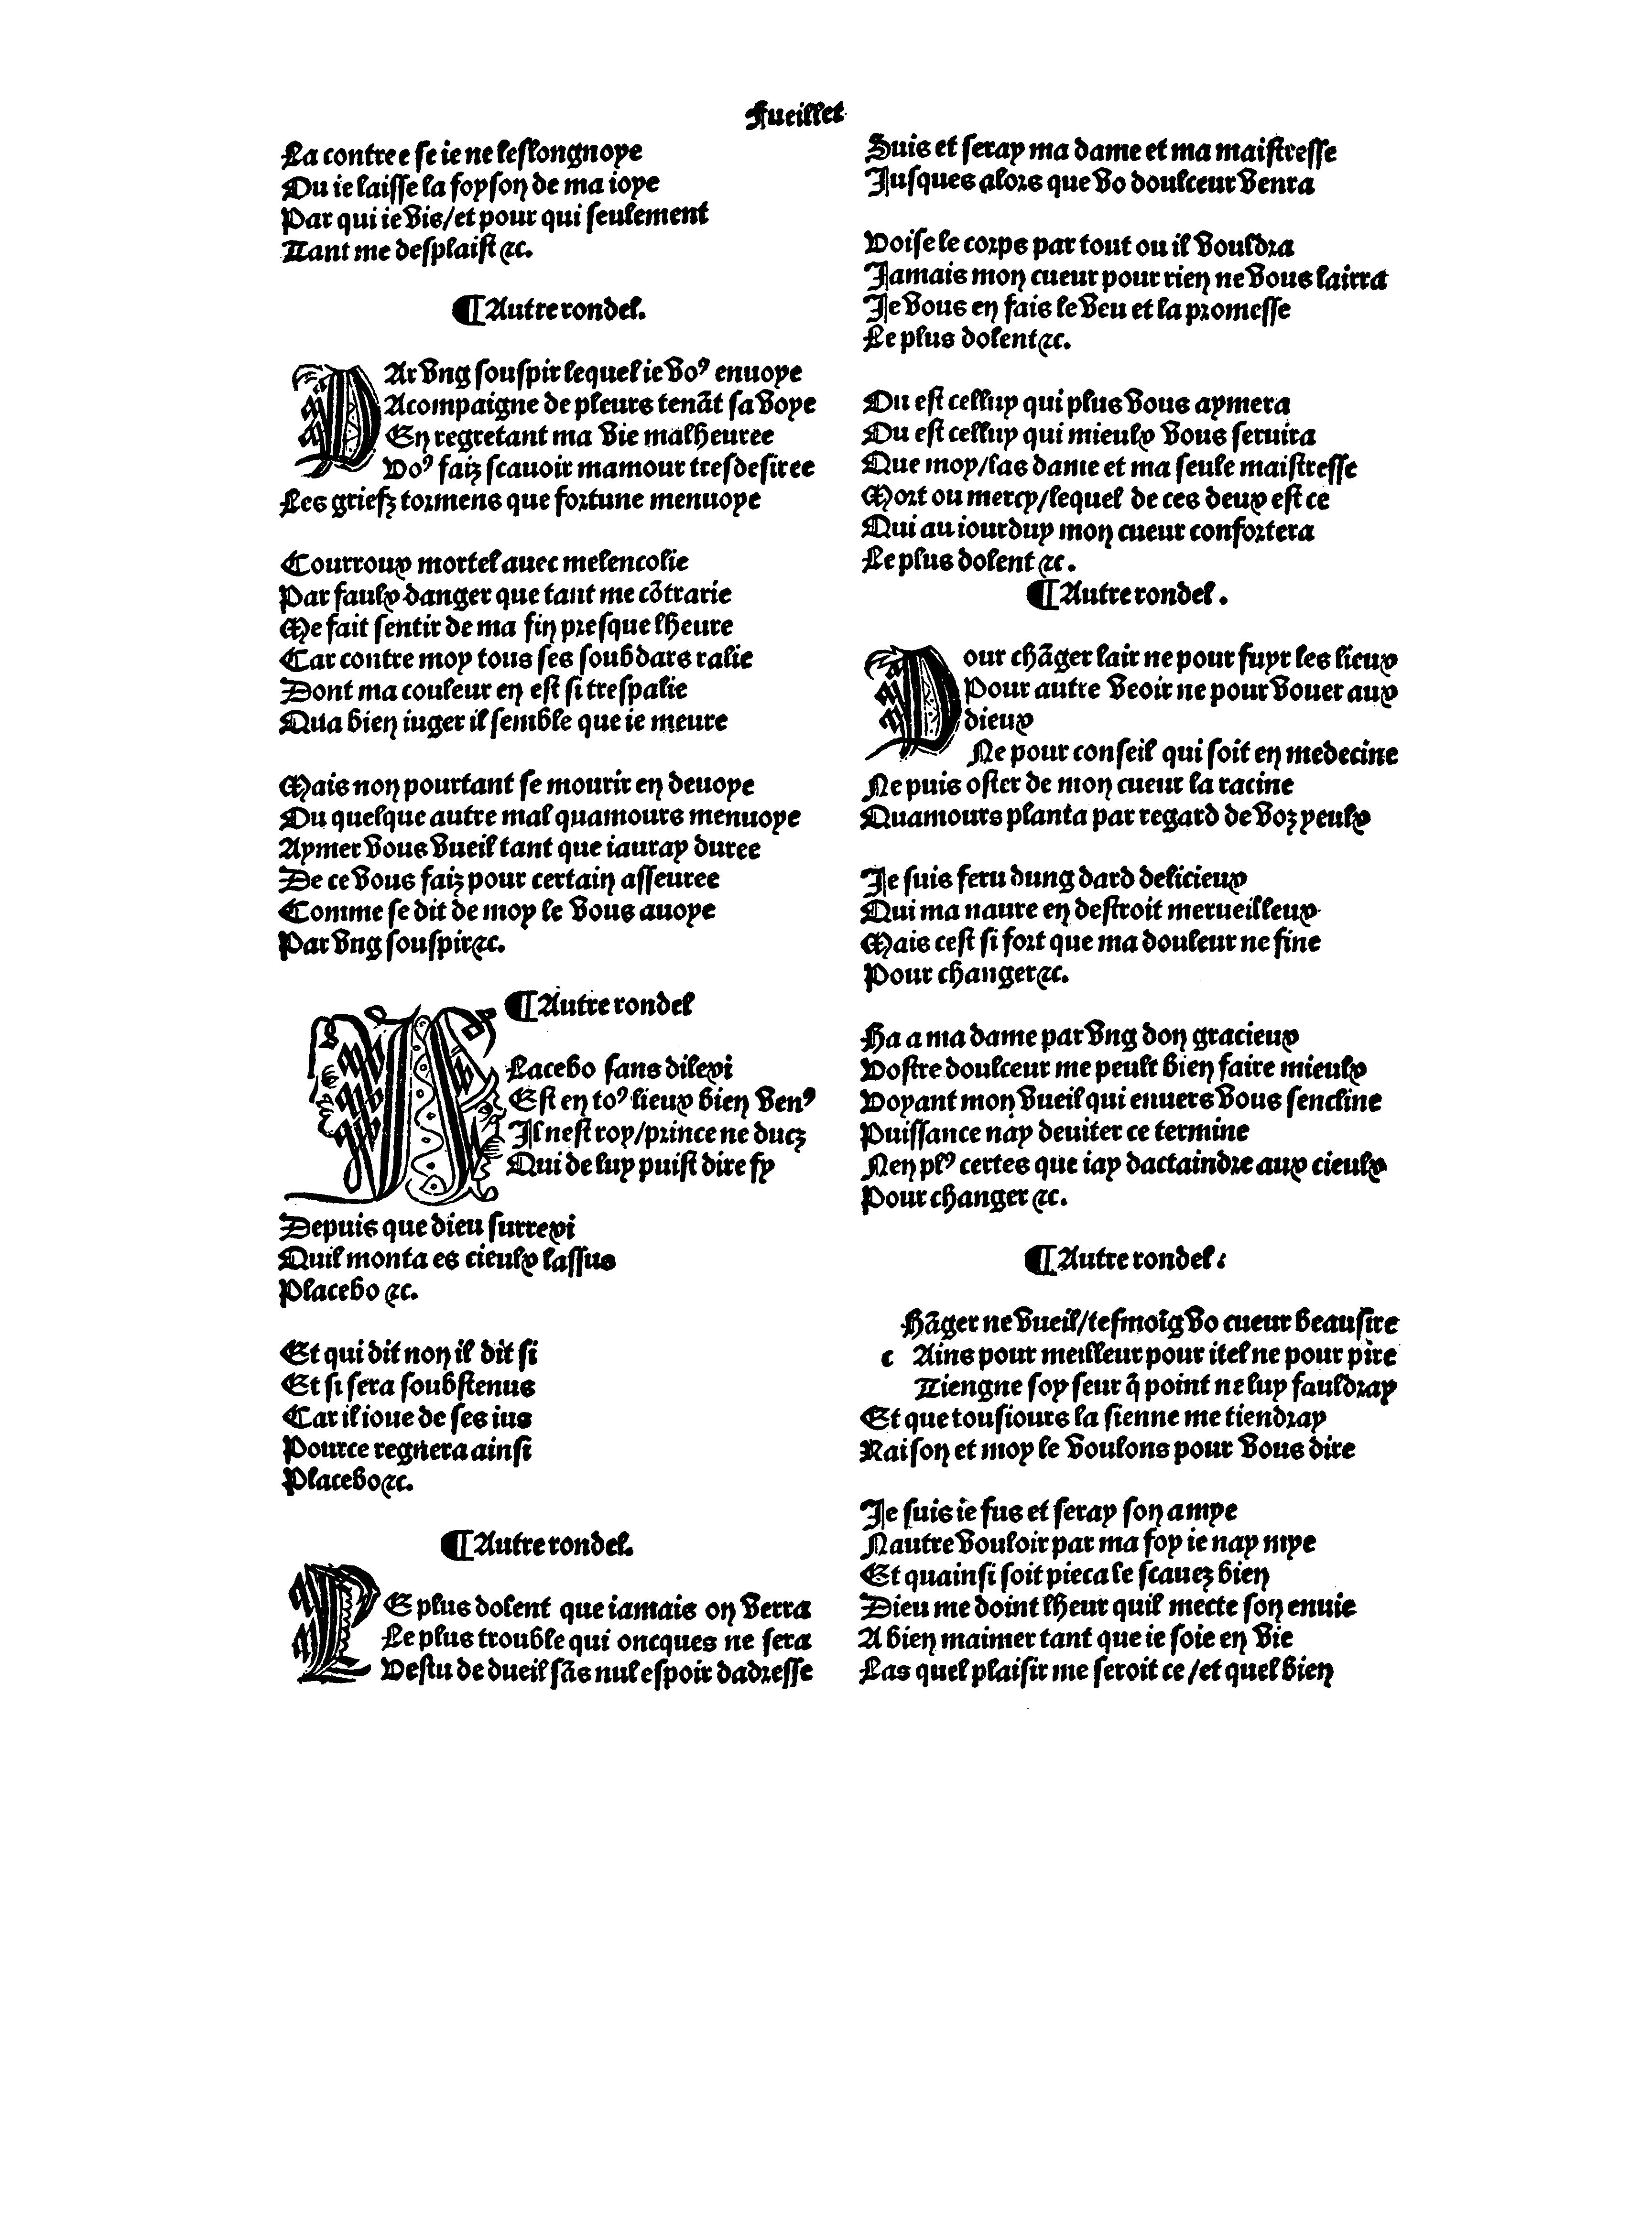 Fueillet
La contree se ie ne leslongnoye
Ou ie laisse la foyson de ma ioye
Par qui ie vis/et pour qui seulement
Tant me desplaist &c.
¶Autre rondel.
PAr vng souspir lequel ie voꝰ enuoye
Acompaigne de pleurs tenãt sa voye
En regretant ma vie malheuree
Voꝰ faiz scauoir mamour tresdesiree
Les griefz tormens que fortune menuoye
Courroux mortel auec melencolie
Par faulx danger que tant me cõtrarie
Me fait sentir de ma fin presque lheure
Car contre moy tous ses soubdars ralie
Dont ma couleur en est si trespalie
Qua bien iuger il semble que ie meure
Mais non pourtant se mourir en deuoye
Ou quelque autre mal quamours menuoye
Aymer vous vueil tant que iauray duree
De ce vous faiz pour certain asseuree
Comme se dit de moy le vous auoye
Par vng souspir&c.
¶Autre rondel
PLacebo sans dilexi
Est en toꝰ lieux bien venꝰ
Il nest roy/prince ne ducz
Qui de luy puist dire fy
Depuis que dieu surrexi
Quil monta es cieulx lassus
Placebo &c.
Et qui dit non il dit si
Et si sera soubstenus
Car il ioue de ses ius
Pource regnera ainsi
Placebo&c.
¶Autre rondel.
LE plus dolent que iamais on verra
Le plus trouble qui oncques ne sera
Vestu de dueil sãs nul espoir dadresse
Suis et seray ma dame et ma maistresse
Jusques alors que vo doulceur venra
Voise le corps par tout ou il vouldra
Jamais mon cueur pour rien ne vous lairra
Je vous en fais le veu et la promesse
Le plus dolent&c.
Ou est celluy qui plus vous aymera
Ou est celluy qui mieulx vous seruira
Que moy/las dame et ma seule maistresse
Mort ou mercy/lequel de ces deux est ce
Qui au iourduy mon cueur confortera
Le plus dolent &c.
¶Autre rondel.
Pour chãger lair ne pour fuyr les lieux
Pour autre veoir ne pour vouer aux
dieux
Ne pour conseil qui soit en medecine
Ne puis oster de mon cueur la racine
Quamours planta par regard de voz yeulx
Je suis feru dung dard delicieux
Qui ma naure en destroit merueilleux
Mais cest si fort que ma douleur ne fine
Pour changer&c.
Ha a ma dame par vng don gracieux
Vostre doulceur me peult bien faire mieulx
Voyant mon vueil qui enuers vous sencline
Puissance nay deuiter ce termine
Nen plꝰ certes que iay dactaindre aux cieulx
Pour changer &c.
¶Autre rondel.
cHãger ne vueil/tesmoĩg vo cueur beausire
Ains pour meilleur pour itel ne pour pire
Tiengne soy seur q̃ point ne luy fauldray
Et que tousiours la sienne me tiendray
Raison et moy le voulons pour vous dire
Je suis ie fus et seray son amye
Nautre vouloir par ma foy ie nay mye
Et quainsi soit pieca le scauez bien
Dieu me doint lheur quil mecte son enuie
A bien maimer tant que ie soie en vie
Las quel plaisir me seroit ce/et quel bien